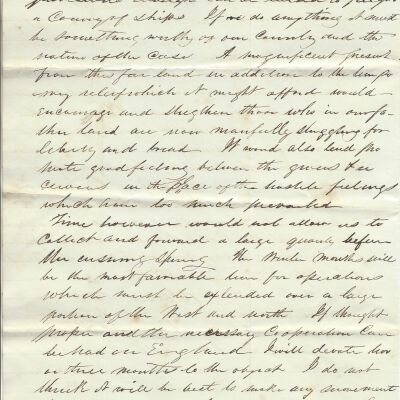 a Convoy of Ships. If we do anything it must
be something worthy of our Country and the
nature of the case. A magnificent present
from this far land in addition to the tempo
rary relief which it might afford would
encourage and stregthen those who in our fa
ther land are now manfully struggling for
liberty and bread. It would also tend to pro
mote good feeling between the givers & re
ceivers in the place of the hostile feelings
which have too much prevailed
Time however would not allow us to
collect and forward a large quantity before
the ensuing spring the Winter months will
be the most favourable time for operations
which must be extended over a large
portion of the West and north. If thought
proper and the necessary Cooperation Can
be had in England I will devote two
or three months to the object. I do not
think it will be best to make any movement